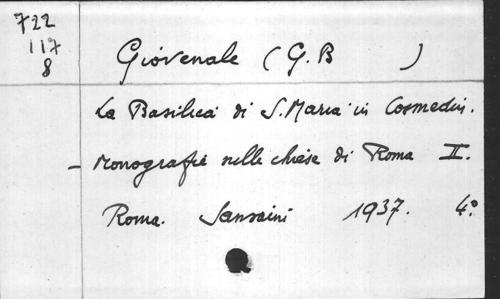 722
117
8
Giovenale (G. B )
La Basilica di S. Maria in Cosmedin.
- Monografie nelle chiese di Roma II.
Roma. Sansaini 1937. 4°